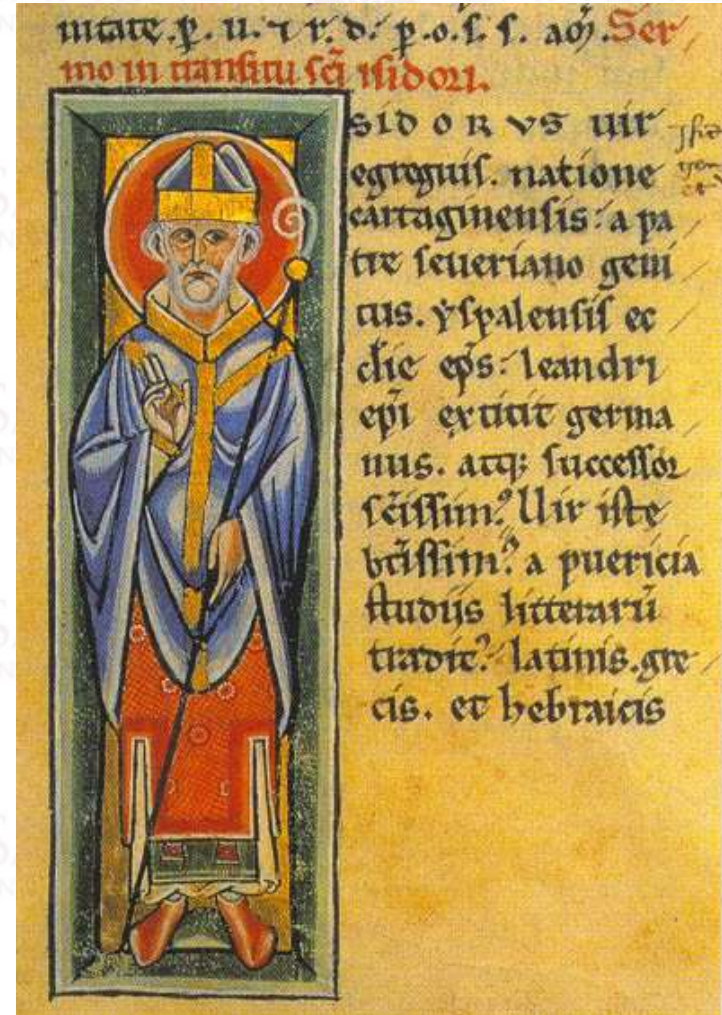 nitate. p. u. ⁊ r. d. p. o. s. s. am̃. Ser
mo in transitu sc̃i isidori.
SIDORVS uir
egreguis. natione
cartaginensis: a pa
tre seueriano geni
tus. yspalensis ec
clie ep̃s: leandri
ep̃i extitit germa
nus. atq; successor
sc̃issim⁹. Uir iste
bt̃issim⁹. a puericia
studiis litterarũ
tradit⁹. latinis. gre
cis. et hebraicis